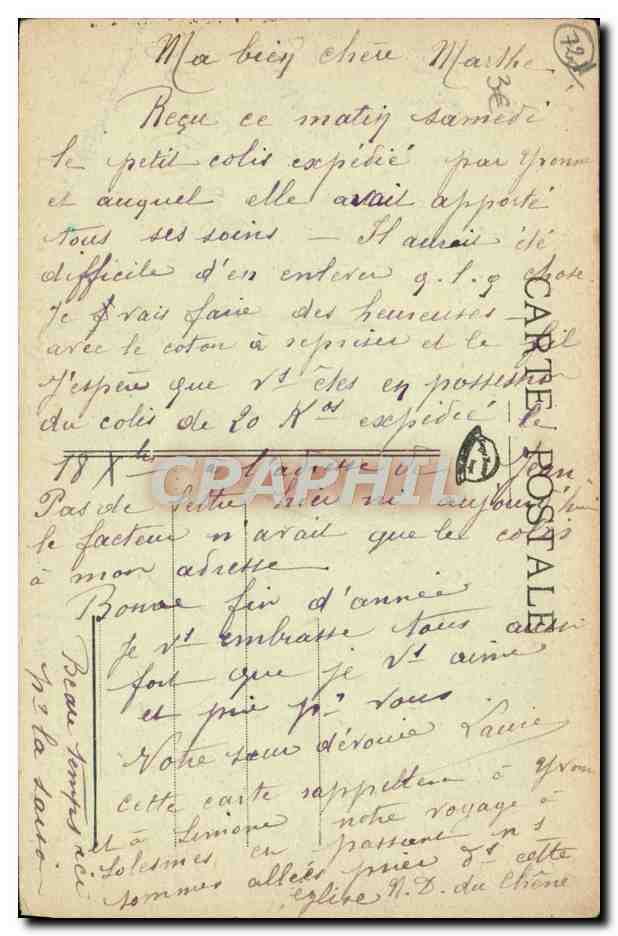 72
3€
Ma bien chère Marthe
Reçu ce matin samedi
le petit colis expédié par Yvonne
et auquel elle avait apporté
tous ses soins — Il aurait été
difficile d'en enlever q.l.q chose.
Je vais faire des heureuses —
avec le coton à repriser et le fil
J'espère que vs êtes en possession
du colis de 20 Kos expédié le
18 Xbre à l'adresse de Jean
Pas de lettre hier ni aujourd'hui
le facteur n'avait que le colis
à mon adresse
Bonne fin d'année
Je vs embrasse tous aussi
fort que je vs aime
et prie pr vous
Votre sœur dévouée
cette carte rappellera à Yvonne
et à Simone notre voyage à
Solesmes en passant ns
sommes allées prier ds cette
église N.D. du Chêne
Beau temps ici
pr la saison
CARTE POSTALE
CPAPHIL